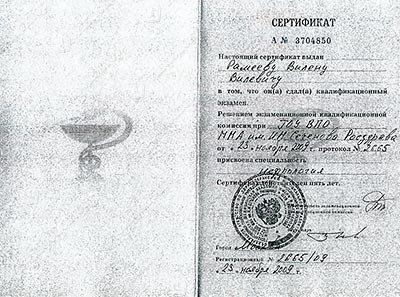 СЕРТИФИКАТ
А № 3704850
Настоящий сертификат выдан
Рамееву Вилену
Вилевичу
в том, что он(а) сдал(а) квалификационный
экзамен.
Решением экзаменационной квалификационной
комиссии при ГОУ ВПО
ММА им. И.М. Сеченова Росздрава
от «23» ноября 2009 г. протокол № 2665
присвоена специальность
нефрология
Сертификат действителен пять лет.
Город
Регистрационный № 2665/09
«23» ноября 2009 г.